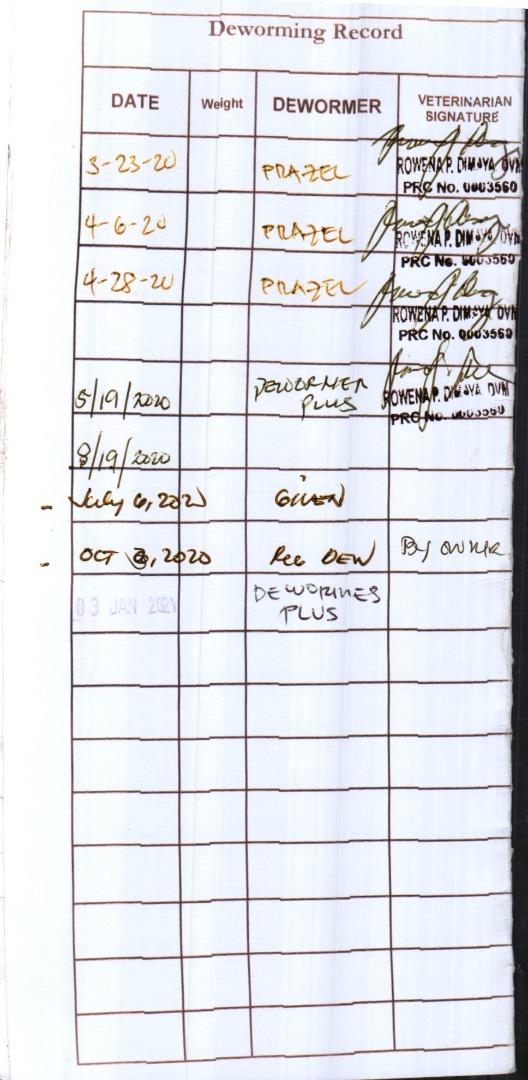 Deworming Record
DATE Weight DEWORMER VETERINARIAN SIGNATURE
3-23-20 PRAZEL ROWENA P. DIMAYA, DVM
PRC No. 0003560
4-6-20 PRAZEL ROWENA P. DIMAYA, DVM
PRC No. 0003560
4-28-20 PRAZEL
ROWENA P. DIMAYA, DVM
PRC No. 0003560
5/19/2020 DEWORMER PLUS ROWENA P. DIMAYA, DVM
PRC No. 0003560
8/19/2020
- July 6, 2020 GIVEN
- OCT 3, 2020 DEW By OWNER
03 JAN 2021 DEWORMER
PLUS